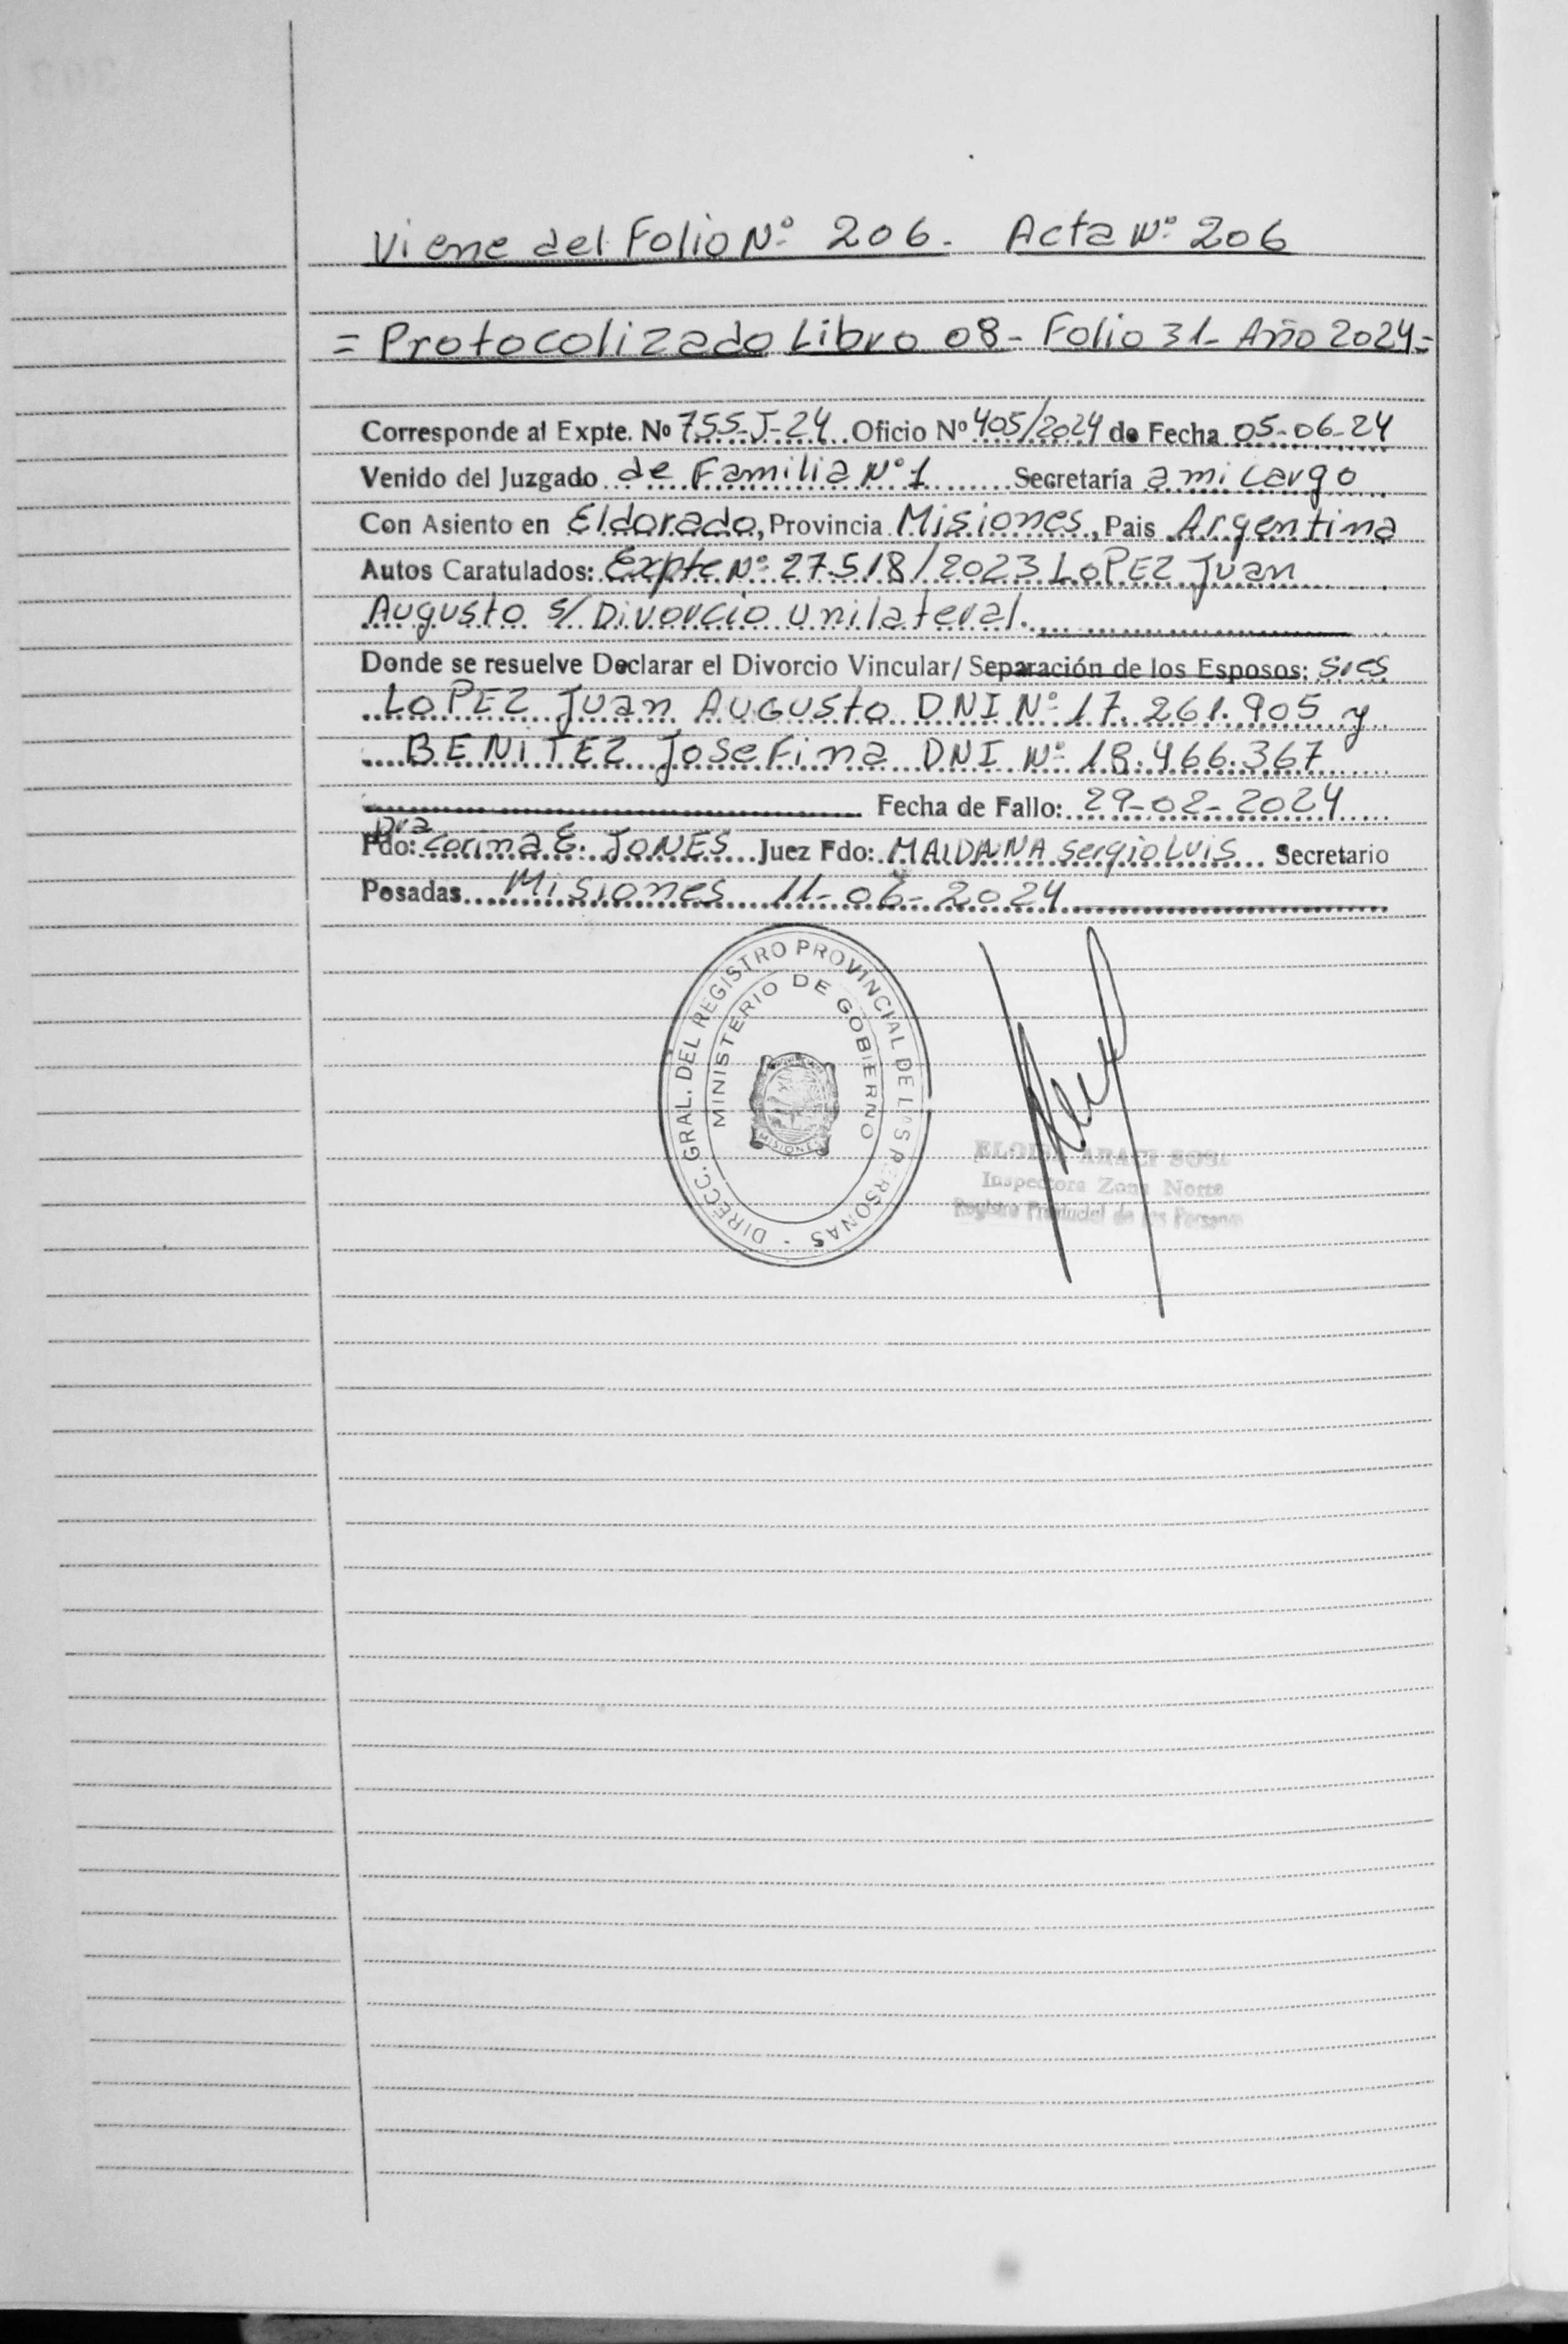 Viene del Folio Nº 206. Acta Nº 206
= Protocolizado Libro 08 - Folio 31 - Año 2024 =
Corresponde al Expte. Nº 755-J-24 Oficio Nº 405/2024 de Fecha 05-06-24
Venido del Juzgado de Familia Nº 1 Secretaría a mi cargo
Con Asiento en Eldorado, Provincia Misiones, Pais Argentina
Autos Caratulados: Expte Nº 27.518/2023 LOPEZ Juan
Augusto s/ Divorcio unilateral.
Donde se resuelve Declarar el Divorcio Vincular/ Separación de los Esposos: sres
LOPEZ Juan Augusto DNI Nº 17.261.905 y
BENITEZ Josefina DNI Nº 18.466.367
Fecha de Fallo: 29-02-2024
Dra
Fdo: Corina E. JONES Juez Fdo: MALDANA Sergio Luis Secretario
Posadas Misiones 11-06-2024
DIRECC. GRAL. DEL REGISTRO PROVINCIAL DE LAS PERSONAS
MINISTERIO DE GOBIERNO
MISIONES
ELOISA ARACI SOSA
Inspectora Zona Norte
Registro Provincial de las Personas